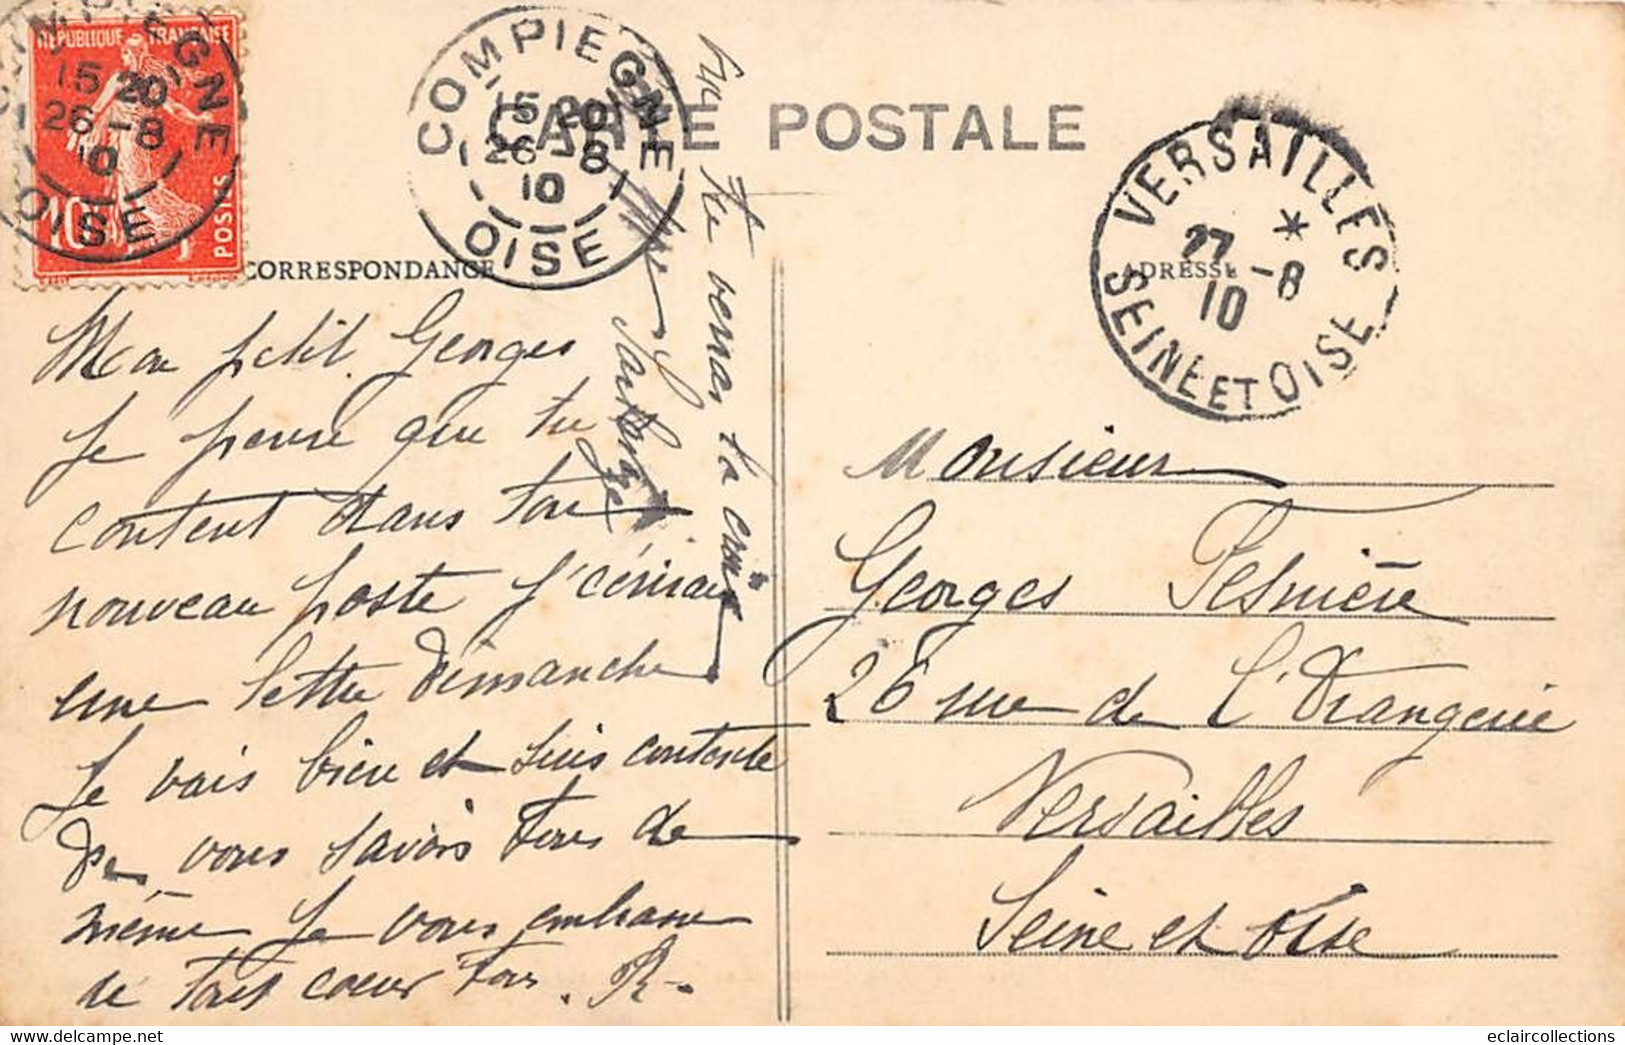 RÉPUBLIQUE FRANÇAISE
10
POSTES
COMPIEGNE
15 20
26 -8
10
OISE
COMPIEGNE
15 20
26 -8
10
OISE
CARTE POSTALE
VERSAILLES
*
27 -8
10
SEINE ET OISE
CORRESPONDANCE
ADRESSE
Mon petit Georges
Je pense que tu
content dans ton
nouveau poste j'écrirai
une lettre dimanche
Je vais bien et suis contente
De vous savoir tous de
même Je vous embrasse
de tout coeur tous. R.
tu verras la croix
Monsieur
Georges Fesnière
26 rue de l'Orangerie
Versailles
Seine et Oise
eclaircollections